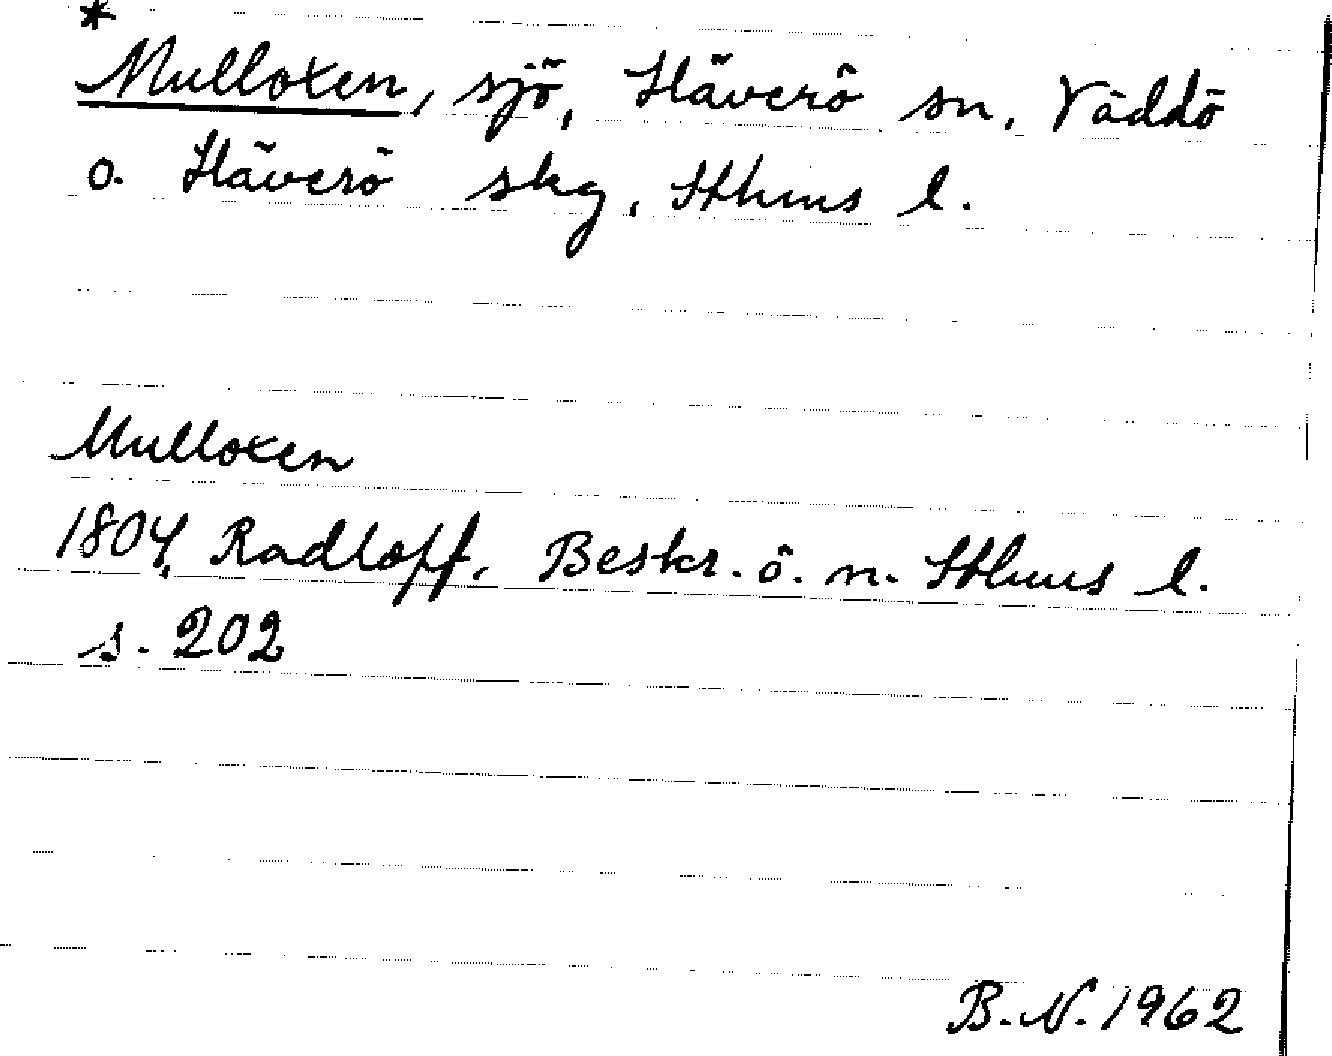 *
Mulloxen, sjö, Häverö sn, Väddö
o. Häverö skg, Sthms l.
Mulloxen
1804, Radloff, Beskr. ö. n. Sthms l.
s. 202
B. N. 1962